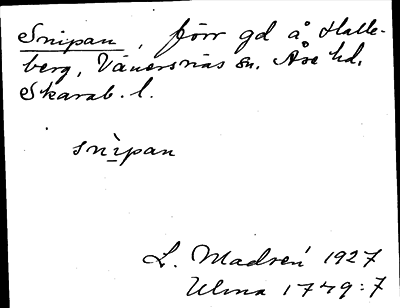 Snipan, förr gd å Halle-
berg, Vänersnäs sn. Åse hd,
Skarab. l.
snìpan
L. Madsén 1927
Ulma 1779:7